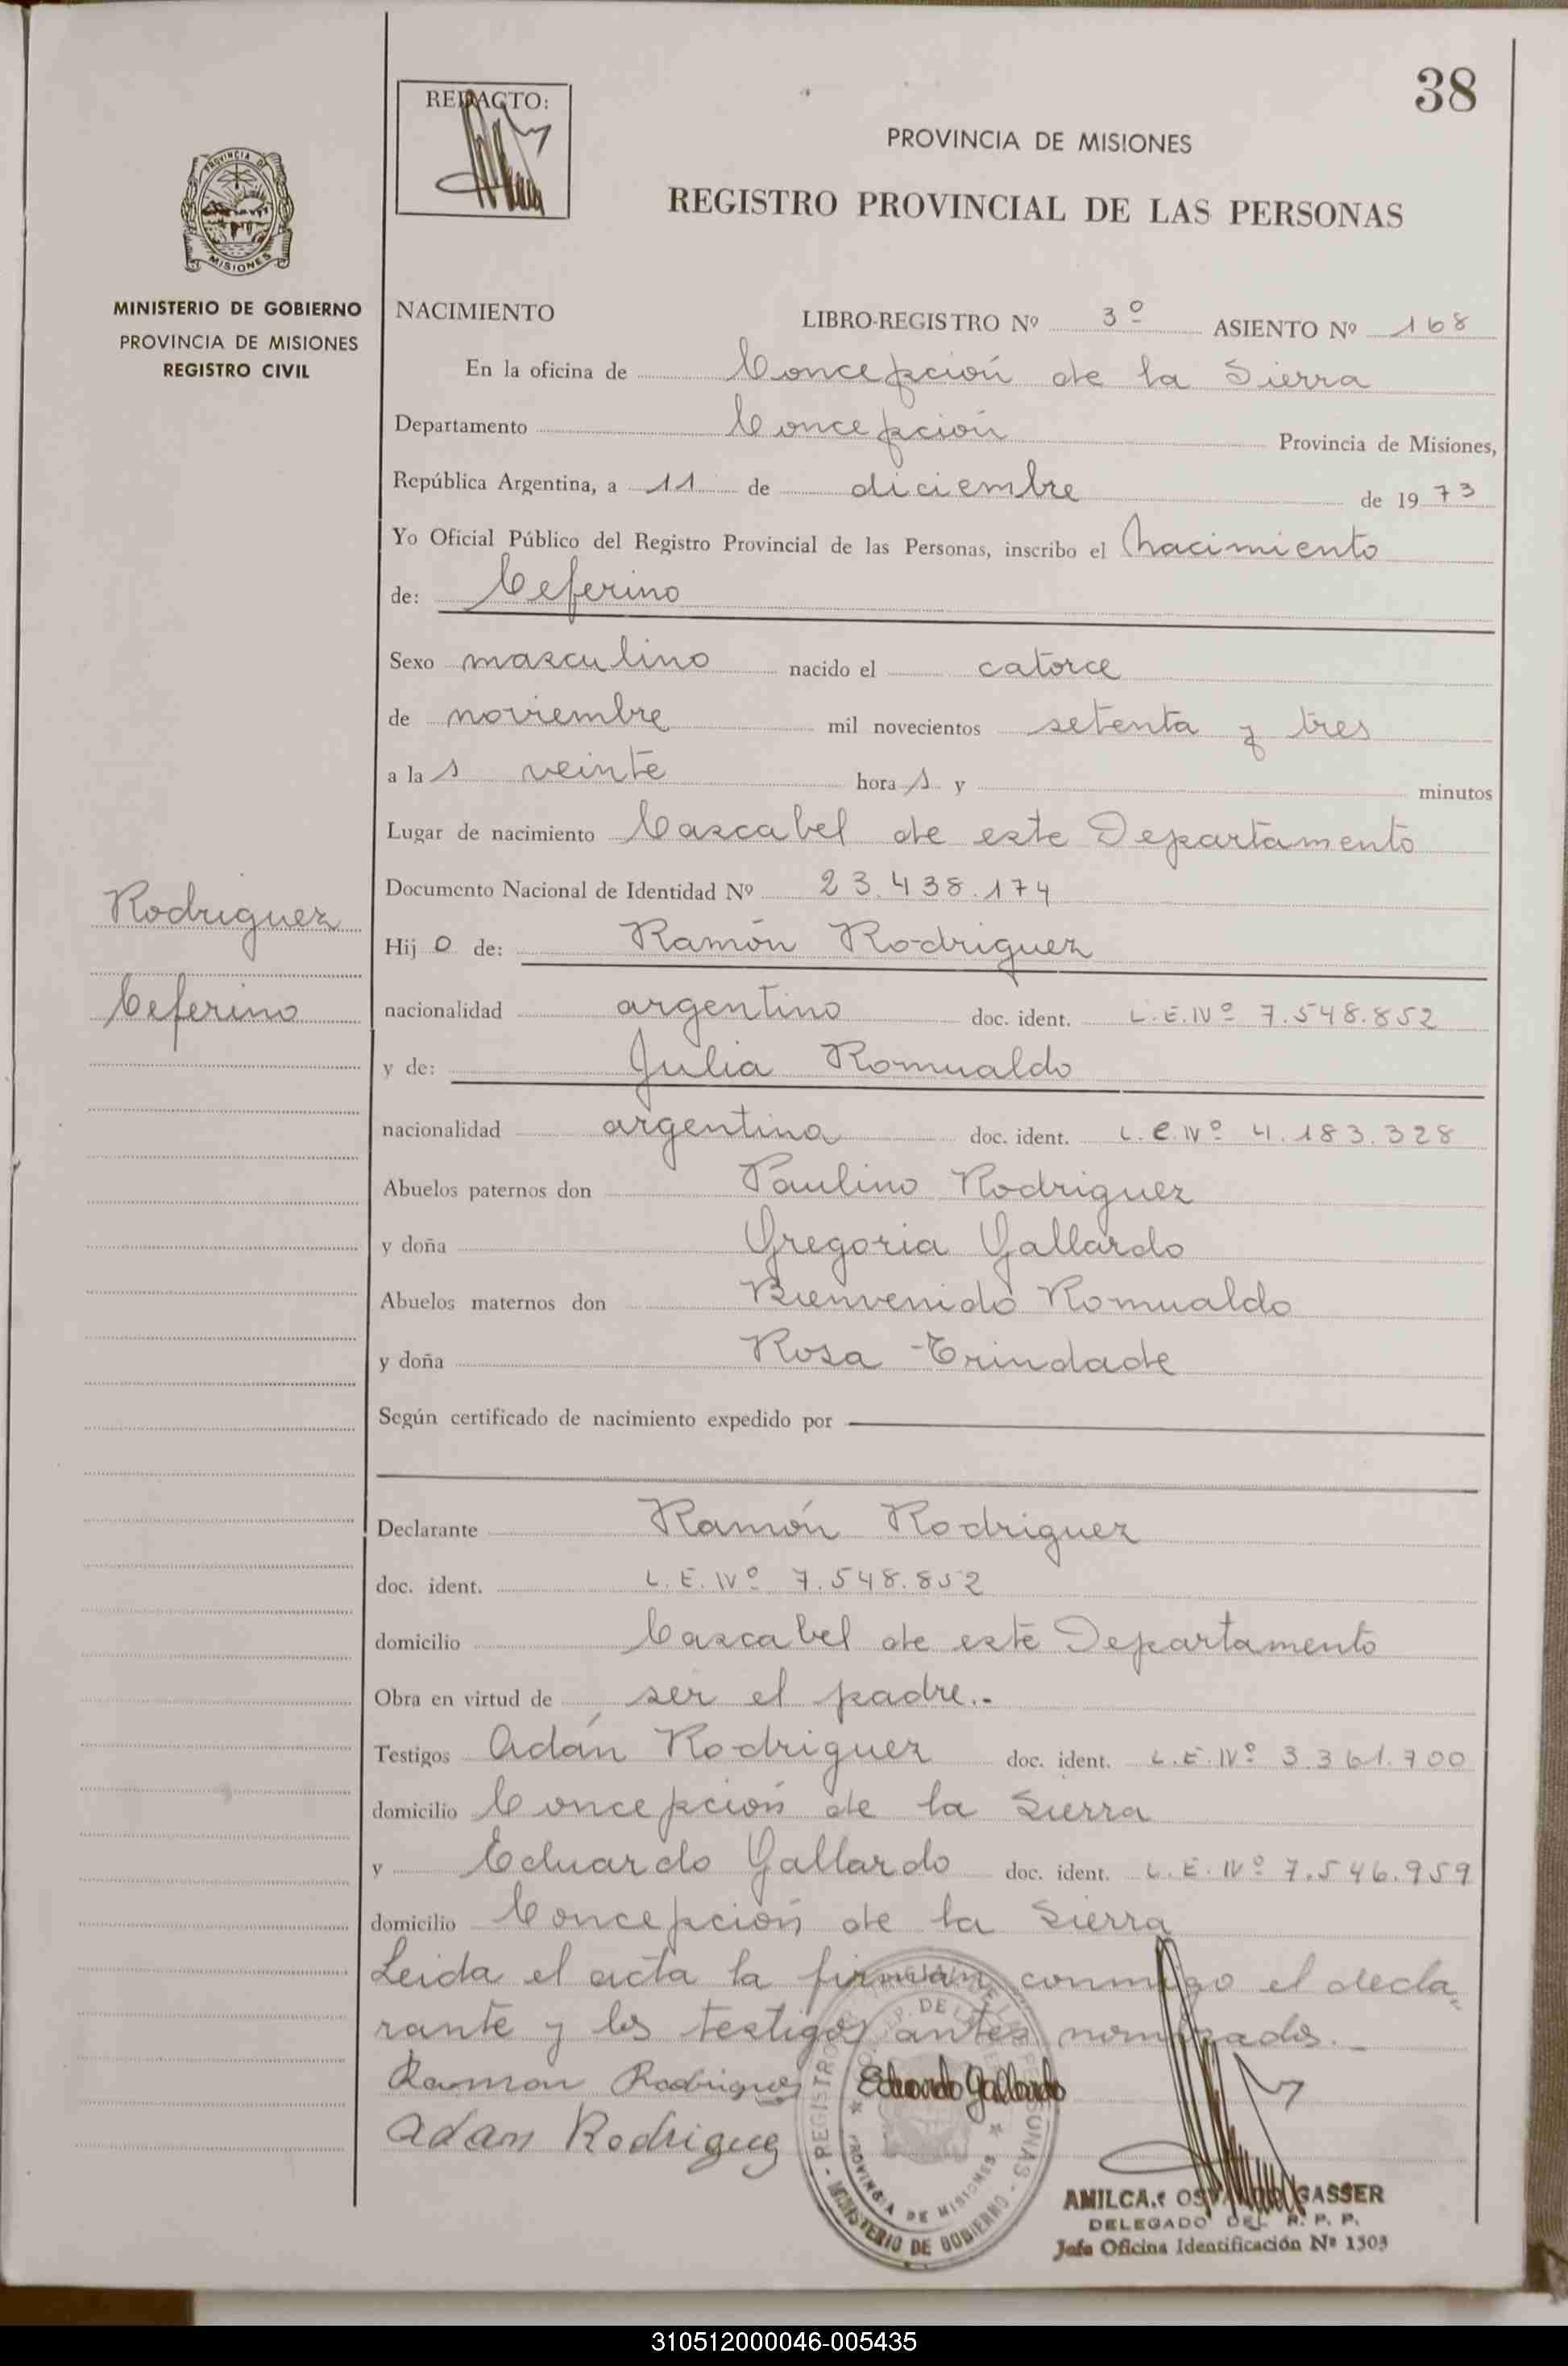 38
REDACTO:
PROVINCIA DE MISIONES
REGISTRO PROVINCIAL DE LAS PERSONAS
PROVINCIA DE
MISIONES
MINISTERIO DE GOBIERNO
PROVINCIA DE MISIONES
REGISTRO CIVIL
Rodriguez
Ceferino
NACIMIENTO LIBRO-REGISTRO Nº 3º ASIENTO Nº 168
En la oficina de Concepción de la Sierra
Departamento Concepción Provincia de Misiones,
República Argentina, a 11 de diciembre de 19 73
Yo Oficial Público del Registro Provincial de las Personas, inscribo el nacimiento
de: Ceferino
Sexo masculino nacido el catorce
de noviembre mil novecientos setenta y tres
a la s veinte hora s y minutos
Lugar de nacimiento Cascabel de este Departamento
Documento Nacional de Identidad Nº 23.438.174
Hij o de: Ramón Rodriguez
nacionalidad argentino doc. ident. L.E.Nº 7.548.852
y de: Julia Romualdo
nacionalidad argentina doc. ident. L.C.Nº 4.183.328
Abuelos paternos don Paulino Rodriguez
y doña Gregoria Gallardo
Abuelos maternos don Bienvenido Romualdo
y doña Rosa Trindade
Según certificado de nacimiento expedido por
Declarante Ramón Rodriguez
doc. ident. L.E.Nº 7.548.852
domicilio Cascabel de este Departamento
Obra en virtud de ser el padre.-
Testigos Adán Rodriguez doc. ident. L.E.Nº 3.361.700
domicilio Concepción de la Sierra
y Eduardo Gallardo doc. ident. L.E.Nº 7.546.959
domicilio Concepción de la Sierra
Leida el acta la firman conmigo el decla
rante y los testigos antes nombrados.-
Ramon Rodriguez Eduardo Gallardo
Adan Rodrigue
PROVINCIA DE MISIONES
MINISTERIO DE GOBIERNO
AMILCAR OSVALDO GASSER
DELEGADO DEL R. P. P.
Jefe Oficina Identificación Nº 1303
310512000046-005435